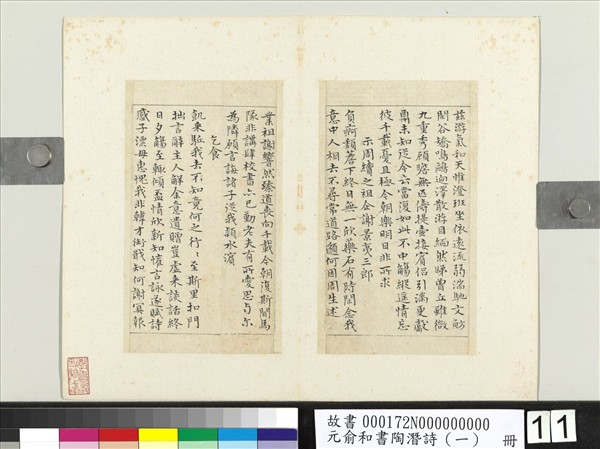 茲游氣和天惟澄班坐依遠流弱湍馳文魴
閑谷矯鳴鷗迥澤散游目緬然睇曾丘雖微
九重秀顧瞻無匹儔提壺接賓侶引滿更獻
酬未知從今去當復如此不中觴縱遥情忘
彼千載憂且極今朝樂明日非所求
示周續之祖企謝景夷三郎
負痾頹簷下終日無一欣藥石有時閑念我
意中人相去不尋常道路邈何因周生述
業祖謝響然臻道喪向千載今朝復斯聞馬
隊非講肆校書亦已勤老夫有所愛思与尓
為隣願言誨諸子從我潁水濱
乞食
飢来驅我去不知竟何之行〻至斯里扣門
拙言辭主人解余意遺贈豈虛来談話終
日夕觴至輒傾盃情欣新知懽言詠遂賦詩
感子漂母惠愧我非韓才銜戢知何謝冥報
故書 000172N000000000
元俞和書陶潛詩(一) 冊
11